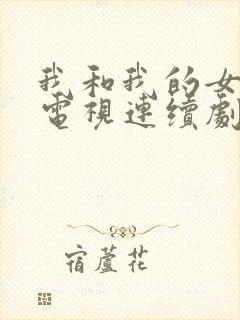 我和我的女
電視連續劇
宿蘆花